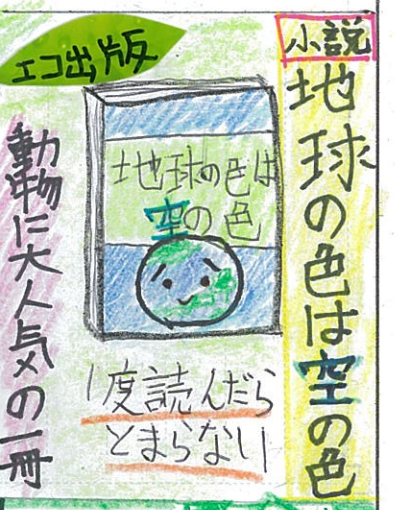 小説
地球の色は空の色
エコ出版
地球の色は
空の色
1度読んだら
とまらない
動物に大人気の一冊